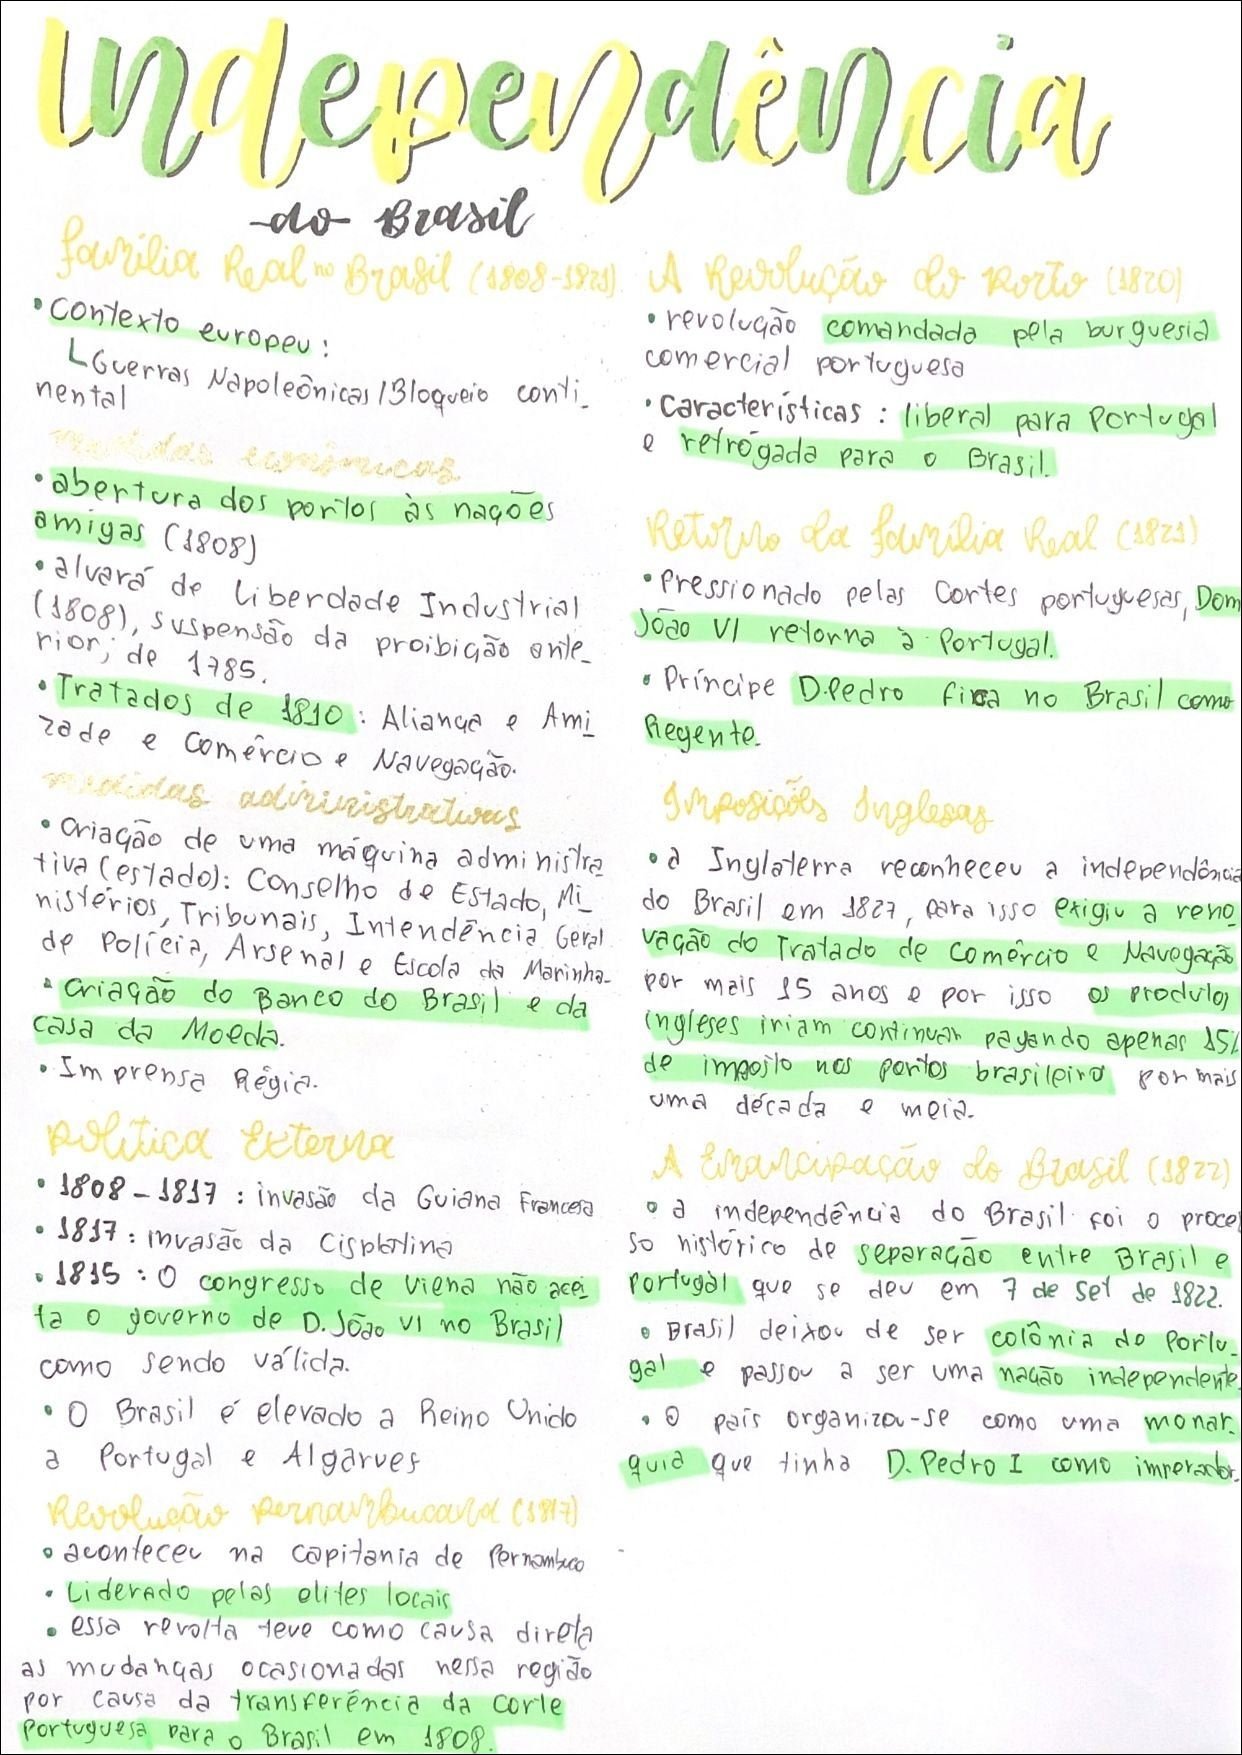 Independência
do Brasil
Família Real no Brasil (1808-1821)
• Contexto europeu:
Guerras Napoleônicas/Bloqueio conti_
nental
medidas econômicas
• abertura dos portos às nações
amigas (1808)
• alvará de Liberdade Industrial
(1808), suspensão da proibição ante_
rior, de 1785.
• Tratados de 1810: Aliança e Ami_
zade e Comércio e Navegação.
medidas administrativas
• criação de uma máquina administra
tiva (estado): Conselho de Estado, Mi_
nistérios, Tribunais, Intendência Geral
de Polícia, Arsenal e Escola da Marinha.
• criação do Banco do Brasil e da
casa da Moeda.
• Imprensa Régia.
Política Externa
• 1808-1817: invasão da Guiana Francesa
• 1817: invasão da Cisplatina
• 1815: O congresso de viena não acei_
ta o governo de D. João VI no Brasil
como sendo válida.
• O Brasil é elevado a Reino Unido
a Portugal e Algarves
Revolução Pernambucana (1817)
• aconteceu na capitania de Pernambuco
• Liderado pelas elites locais
• essa revolta teve como causa direta
as mudanças ocasionadas nessa região
por causa da transferência da corte
Portuguesa para o Brasil em 1808.
A Revolução do Porto (1820)
• revolução comandada pela burguesia
comercial portuguesa
• Características: liberal para Portugal
e retrógada para o Brasil.
Retorno da família Real (1821)
• Pressionado pelas Cortes portuguesas, Dom
João VI retorna à Portugal.
• Príncipe D.Pedro fica no Brasil como
Regente.
Imposições Inglesas
• a Inglaterra reconheceu a independência
do Brasil em 1827, para isso exigiu a reno
vação do Tratado de Comércio e Navegação
por mais 15 anos e por isso os produtos
ingleses iriam continuar pagando apenas 15%
de imposto nos portos brasileiro por mais
uma década e meia.
A Emancipação do Brasil (1822)
• a independência do Brasil foi o proces
so histórico de separação entre Brasil e
Portugal que se deu em 7 de set de 1822.
• Brasil deixou de ser colônia de Portu_
gal e passou a ser uma nação independente.
• O país organizou-se como uma monar_
quia que tinha D. Pedro I como imperador.